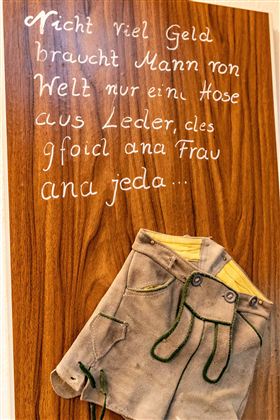 Nicht viel Geld
braucht Mann von
Welt nur eine Hose
aus Leder, des
gfoid ana Frau
ana jeda...